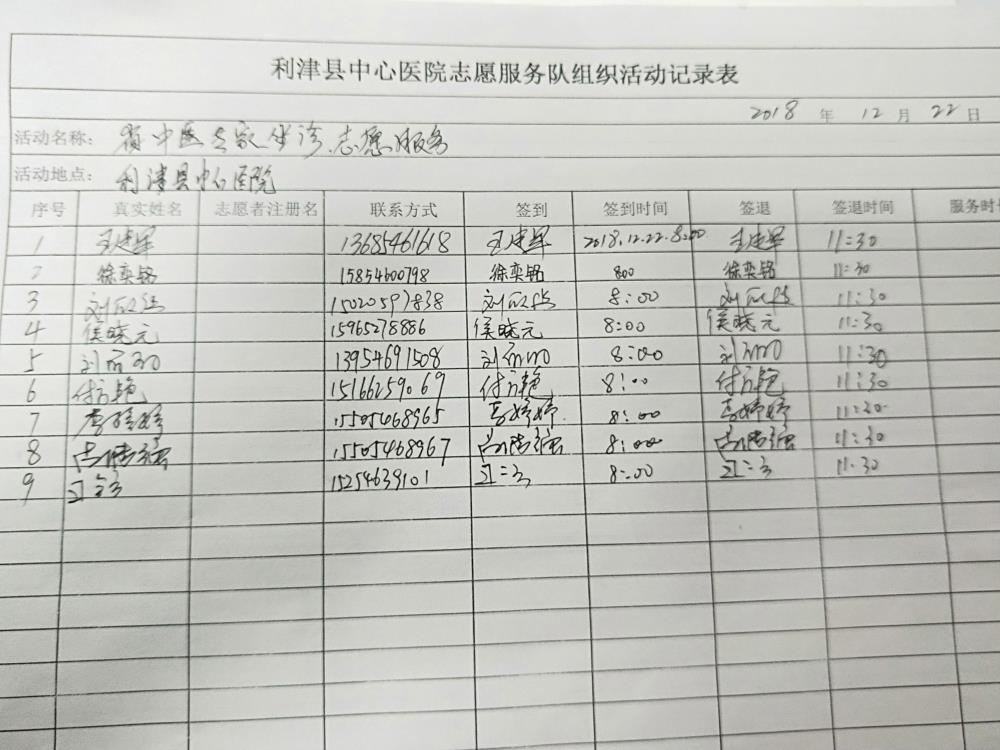 利津县中心医院志愿服务队组织活动记录表
2018 年 12 月 22 日
活动名称: 省中医专家坐诊志愿服务
活动地点: 利津县中心医院
序号 真实姓名 志愿者注册名 联系方式 签到 签到时间 签退 签退时间 服务时
1 王建军 13685461618 王建军 2018.12.22.8:00 王建军 11:30
2 徐奕铭 15854600798 徐奕铭 800 徐奕铭 11:30
3 15020597838 8:00 11:30
4 侯晓元 15965278886 侯晓元 8:00 侯晓元 11:30
5 13954691508 8:00 11:30
6 付艳 15166259069 付艳 8:00 付艳 11:30
7 李婷婷 15505468965 李婷婷 8:00 李婷婷 11:20
8 15505468967 8:00 11:30
9 15254639101 8:00 11:30